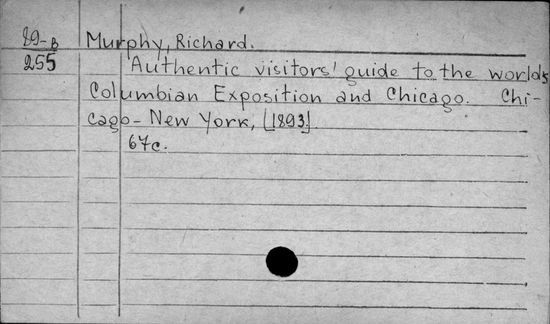 89-B Murphy, Richard.
255 Authentic visitors' guide to the world's
Columbian Exposition and Chicago. Chi-
cago-New York, [1893]
67c.